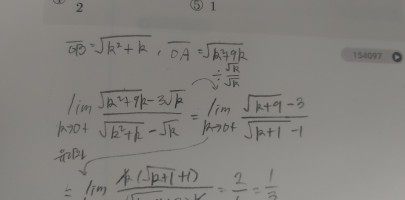 2 ⑤ 1
OB = √k²+k , OA = √k²+9k
154097
÷ √k / √k
lim k→0+ (√k²+9k - 3√k) / (√k²+k - √k) = lim k→0+ (√k+9 - 3) / (√k+1 - 1)
= lim k(√k+1 + 1) = 2 = 1/3